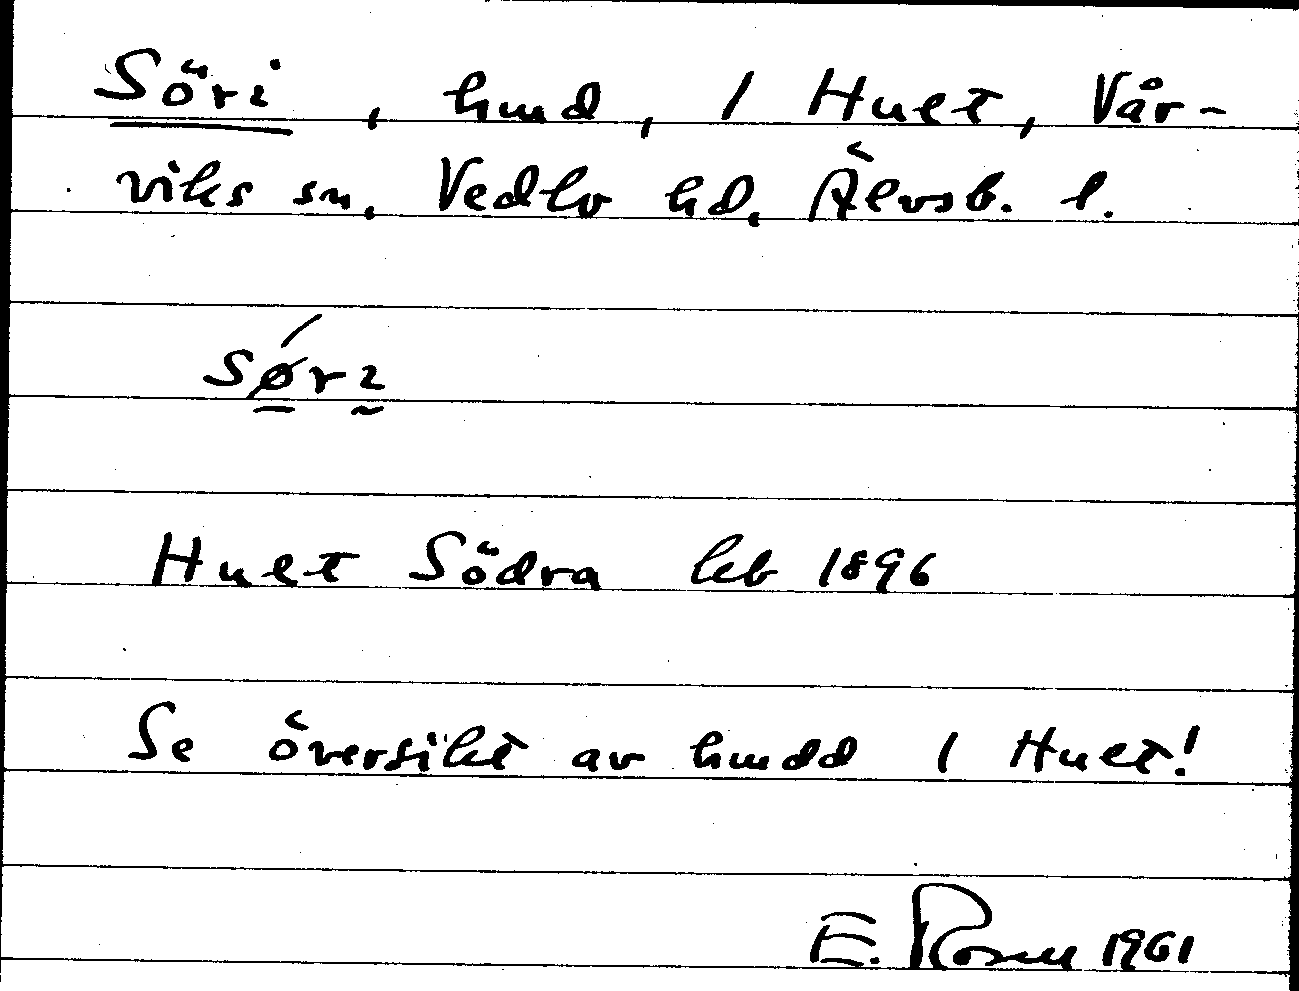 Söri, hmd, I Huet, Vår-
viks sn, Vedbo hd, Älvsb. l.
sø̱rḭ
Huet Södra leb 1896
Se översikt av hmdd I Huet!
E. 1961